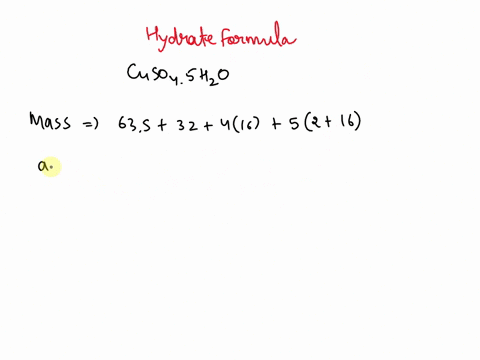 Hydrate formula
CuSO4.5H2O
Mass => 63.5 + 32 + 4(16) + 5(2+16)
a.